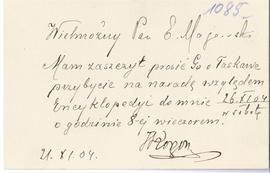 1085
Wielmożny Pan E. Mago
Mam zaszczyt prosić Go o łaskawe
przybycie na naradę względem
Encyklopedyi do mnie 26.XI.04
w sobotę
o godzinie 8-ej wieczorem.
21. XI. 04.